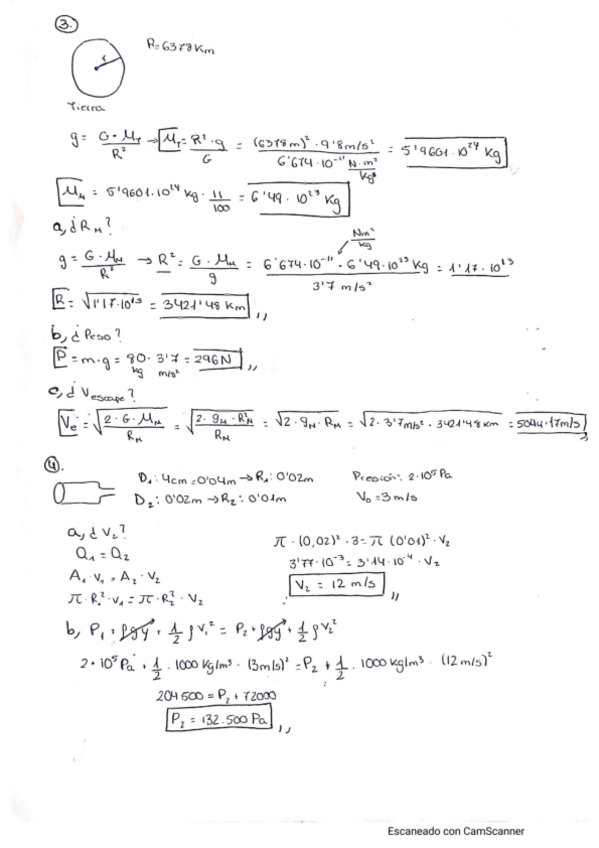 3.
R=6378Km
r
Tierra
g = G·M_T / R² → M_T = R²·g / G = (6378m)²·9'8m/s² / 6'674·10⁻¹¹ N·m²/kg² = 5'9601·10²⁴ Kg
M_M = 5'9601·10²⁴ Kg · 11/100 = 6'49·10²³ Kg
a, ¿R_M?
g = G·M_M / R² → R² = G·M_M / g = 6'674·10⁻¹¹ Nm²/kg · 6'49·10²³ Kg / 3'7 m/s² = 1'17·10¹³
R = √1'17·10¹³ = 3421'48 Km
b, ¿Peso?
P = m·g = 80 kg · 3'7 m/s² = 296N
c, ¿Vescape?
Ve = √(2·G·M_M / R_M) = √(2·g_M·R_M² / R_M) = √2·g_M·R_M = √2·3'7m/s²·3421'48Km = 5044'17m/s
4.
D₁: 4cm = 0'04m → R₁: 0'02m Presión: 2·10⁵ Pa
D₂: 0'02m → R₂: 0'01m V₀ = 3m/s
a, ¿V₂?
Q₁ = Q₂ π·(0,02)²·3 = π (0'01)²·V₂
A₁·V₁ = A₂·V₂ 3'77·10⁻³ = 3'14·10⁻⁴·V₂
π·R₁²·V₁ = π·R₂²·V₂ V₂ = 12 m/s
b, P₁ + ρgy + 1/2 ρV₁² = P₂ + ρgy + 1/2 ρV₂²
2·10⁵Pa + 1/2 · 1000 Kg/m³ · (3m/s)² = P₂ + 1/2 · 1000 Kg/m³ · (12m/s)²
204500 = P₂ + 72000
P₂ = 132.500 Pa
Escaneado con CamScanner